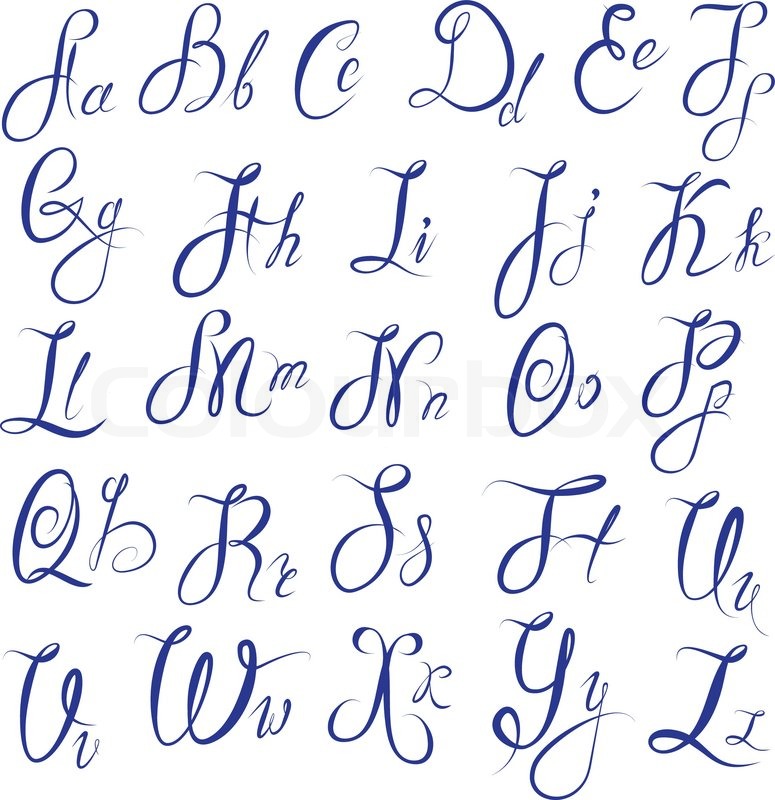 Aa Bb Cc Dd Ee Ff
Gg Hh Ii Jj Kk
Ll Mm Nn Oo Pp
colourbox
Qq Rr Ss Tt Uu
Vv Ww Xx Yy Zz